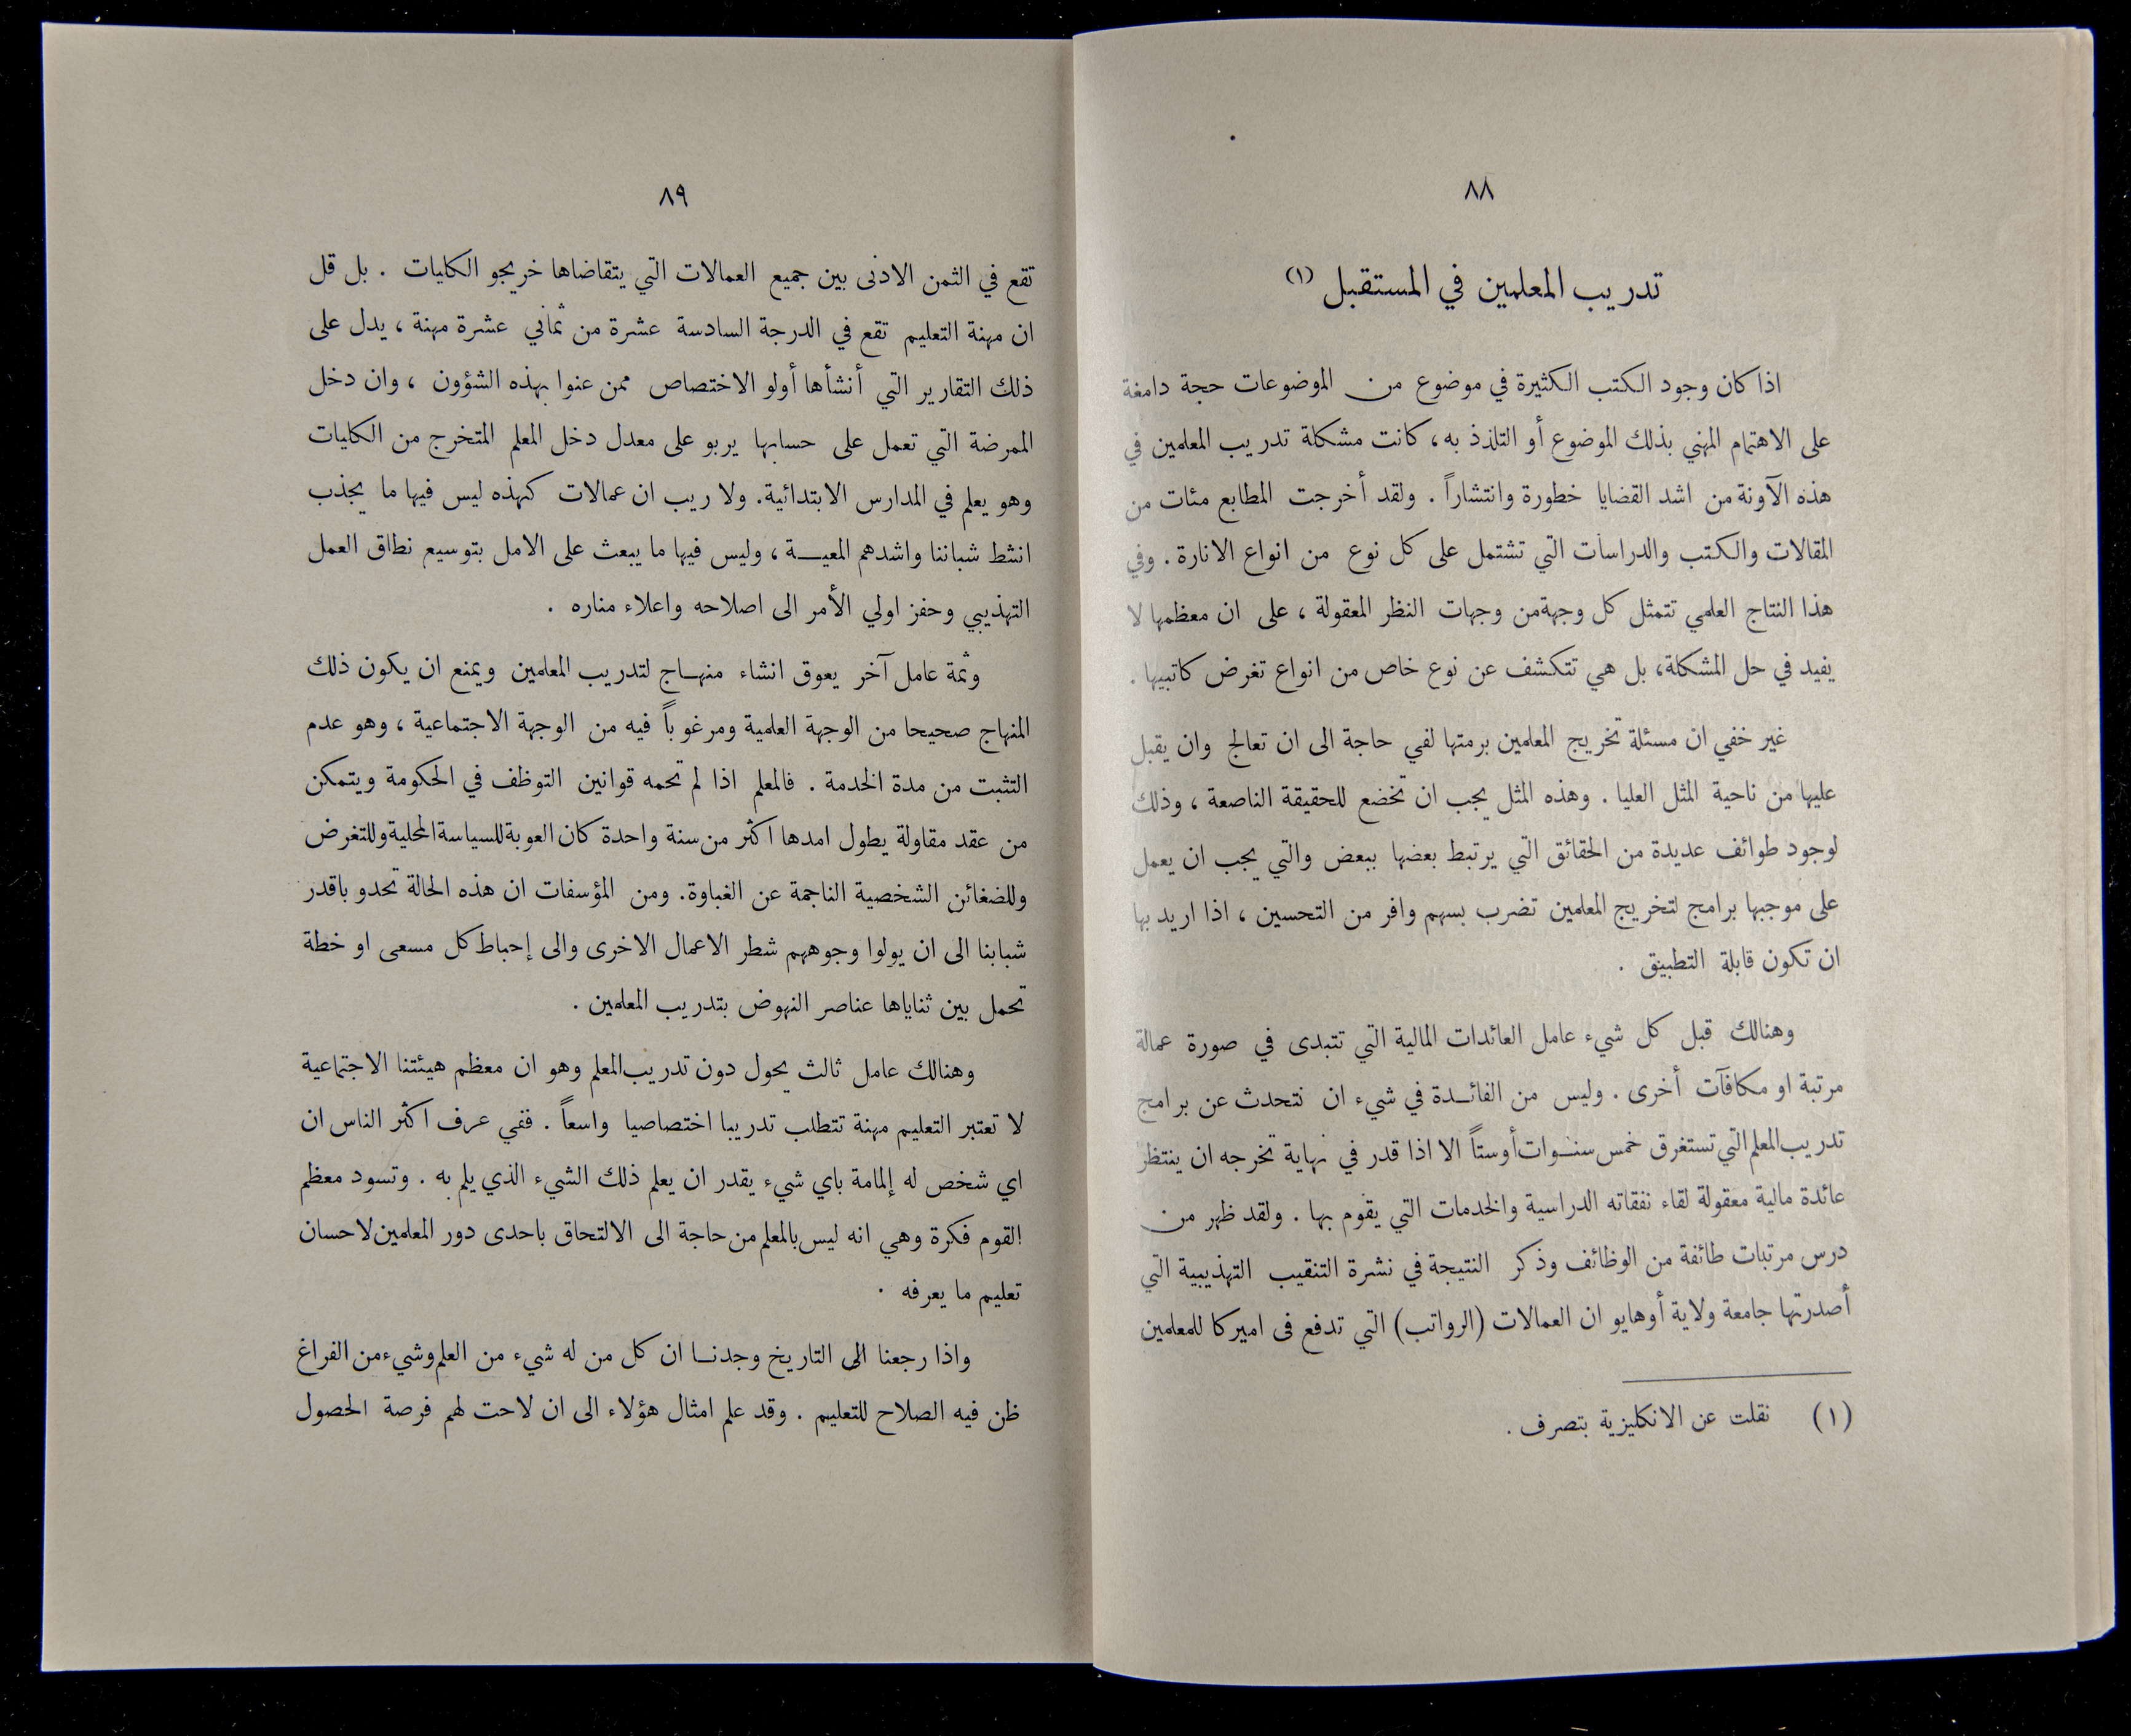 ٨٨
تدريب المعلمين في المستقبل (١)
اذا كان وجود الكتب الكثيرة في موضوع من الموضوعات حجة دامغة
على الاهتمام المهني بذلك الموضوع أو التلذذ به، كانت مشكلة تدريب المعلمين في
هذه الآونة من اشد القضايا خطورة وانتشاراً . ولقد أخرجت المطابع مئات من
المقالات والكتب والدراسات التي تشتمل على كل نوع من انواع الانارة . وفي
هذا النتاج العلمي تتمثل كل وجهة من وجهات النظر المعقولة ، على ان معظمها لا
يفيد في حل المشكلة، بل هي تتكشف عن نوع خاص من انواع تغرض كاتبيها .
غير خفي ان مسئلة تخريج المعلمين برمتها لفي حاجة الى ان تعالج وان يقبل
عليها من ناحية المثل العليا . وهذه المثل يجب ان تخضع للحقيقة الناصعة ، وذلك
لوجود طوائف عديدة من الحقائق التي يرتبط بعضها ببعض والتي يجب ان يعمل
على موجبها برامج لتخريج المعلمين تضرب بسهم وافر من التحسين ، اذا اريد بها
ان تكون قابلة التطبيق .
وهنالك قبل كل شيء عامل العائدات المالية التي تتبدى في صورة عمالة
مرتبة او مكافآت أخرى . وليس من الفائدة في شيء ان نتحدث عن برامج
تدريب المعلم التي تستغرق خمس سنوات أو ستاً الا اذا قدر في نهاية تخرجه ان ينتظر
عائدة مالية معقولة لقاء نفقاته الدراسية والخدمات التي يقوم بها . ولقد ظهر من
درس مرتبات طائفة من الوظائف وذكر النتيجة في نشرة التنقيب التهذيبية التي
أصدرتها جامعة ولاية أوهايو ان العمالات (الرواتب) التي تدفع فى اميركا للمعلمين
(١) نقلت عن الانكليزية بتصرف .
٨٩
تقع في الثمن الادنى بين جميع العمالات التي يتقاضاها خريجو الكليات . بل قل
ان مهنة التعليم تقع في الدرجة السادسة عشرة من ثماني عشرة مهنة ، يدل على
ذلك التقارير التي أنشأها أولو الاختصاص ممن عنوا بهذه الشؤون ، وان دخل
الممرضة التي تعمل على حسابها يربو على معدل دخل المعلم المتخرج من الكليات
وهو يعلم في المدارس الابتدائية. ولا ريب ان عمالات كهذه ليس فيها ما يجذب
انشط شباننا واشدهم المعية ، وليس فيها ما يبعث على الامل بتوسيع نطاق العمل
التهذيبي وحفز اولي الأمر الى اصلاحه واعلاء مناره .
وثمة عامل آخر يعوق انشاء منهاج لتدريب المعلمين ويمنع ان يكون ذلك
المنهاج صحيحا من الوجهة العلمية ومرغوباً فيه من الوجهة الاجتماعية ، وهو عدم
التثبت من مدة الخدمة . فالمعلم اذا لم تحمه قوانين التوظف في الحكومة ويتمكن
من عقد مقاولة يطول امدها اكثر من سنة واحدة كان العوبة للسياسة المحلية وللتغرض
وللضغائن الشخصية الناجمة عن الغباوة. ومن المؤسفات ان هذه الحالة تحدو باقدر
شبابنا الى ان يولوا وجوههم شطر الاعمال الاخرى والى إحباط كل مسعى او خطة
تحمل بين ثناياها عناصر النهوض بتدريب المعلمين .
وهنالك عامل ثالث يحول دون تدريب المعلم وهو ان معظم هيئتنا الاجتماعية
لا تعتبر التعليم مهنة تتطلب تدريبا اختصاصيا واسعاً . ففي عرف اكثر الناس ان
اي شخص له إلمامة باي شيء يقدر ان يعلم ذلك الشيء الذي يلم به . وتسود معظم
القوم فكرة وهي انه ليس بالمعلم من حاجة الى الالتحاق باحدى دور المعلمين لاحسان
تعليم ما يعرفه .
واذا رجعنا الى التاريخ وجدنا ان كل من له شيء من العلم وشيء من الفراغ
ظن فيه الصلاح للتعليم . وقد علم امثال هؤلاء الى ان لاحت لهم فرصة الحصول